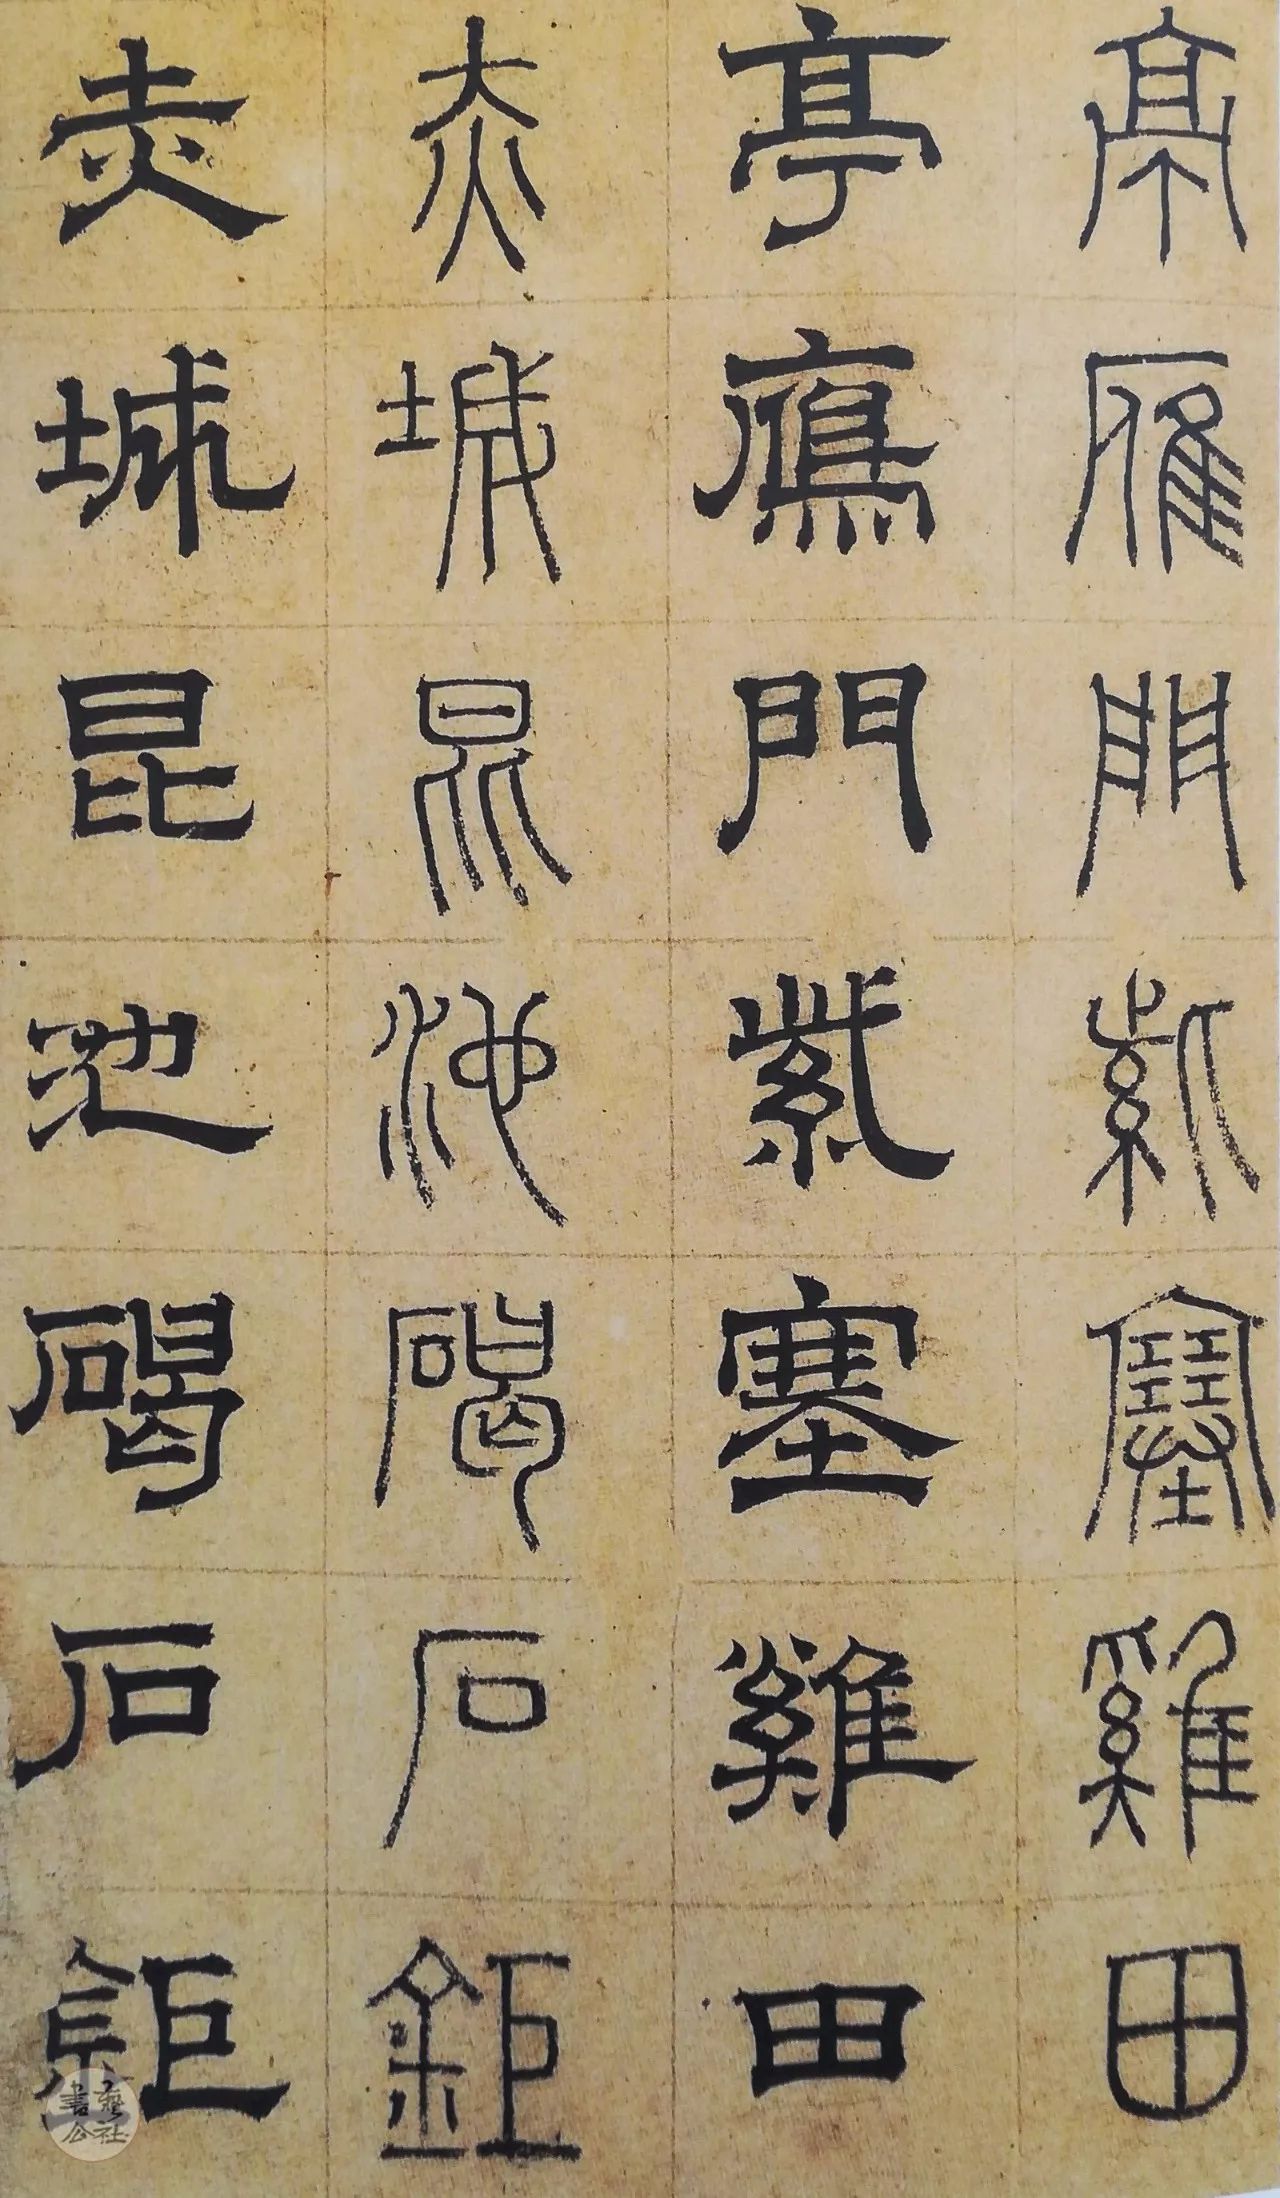 亭雁門紫塞雞田
亭鴈門紫塞雞田
赤城昆池碣石鉅
赤城昆池碣石鉅
書藝公社